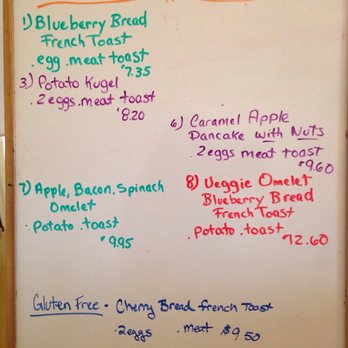 1) Blueberry Bread
French Toast
. egg . meat toast
$7.35
3) Potato Kugel
. 2 eggs . meat toast
$8.20
6) Caramel Apple
Pancake with Nuts
. 2 eggs meat toast
$9.60
7) Apple, Bacon. Spinach
Omelet
. Potato . toast
$9.95
8) Veggie Omelet
Blueberry Bread
French Toast
. Potato . toast
$12.60
Gluten Free - Cherry Bread French Toast
. 2 eggs . meat $9.50